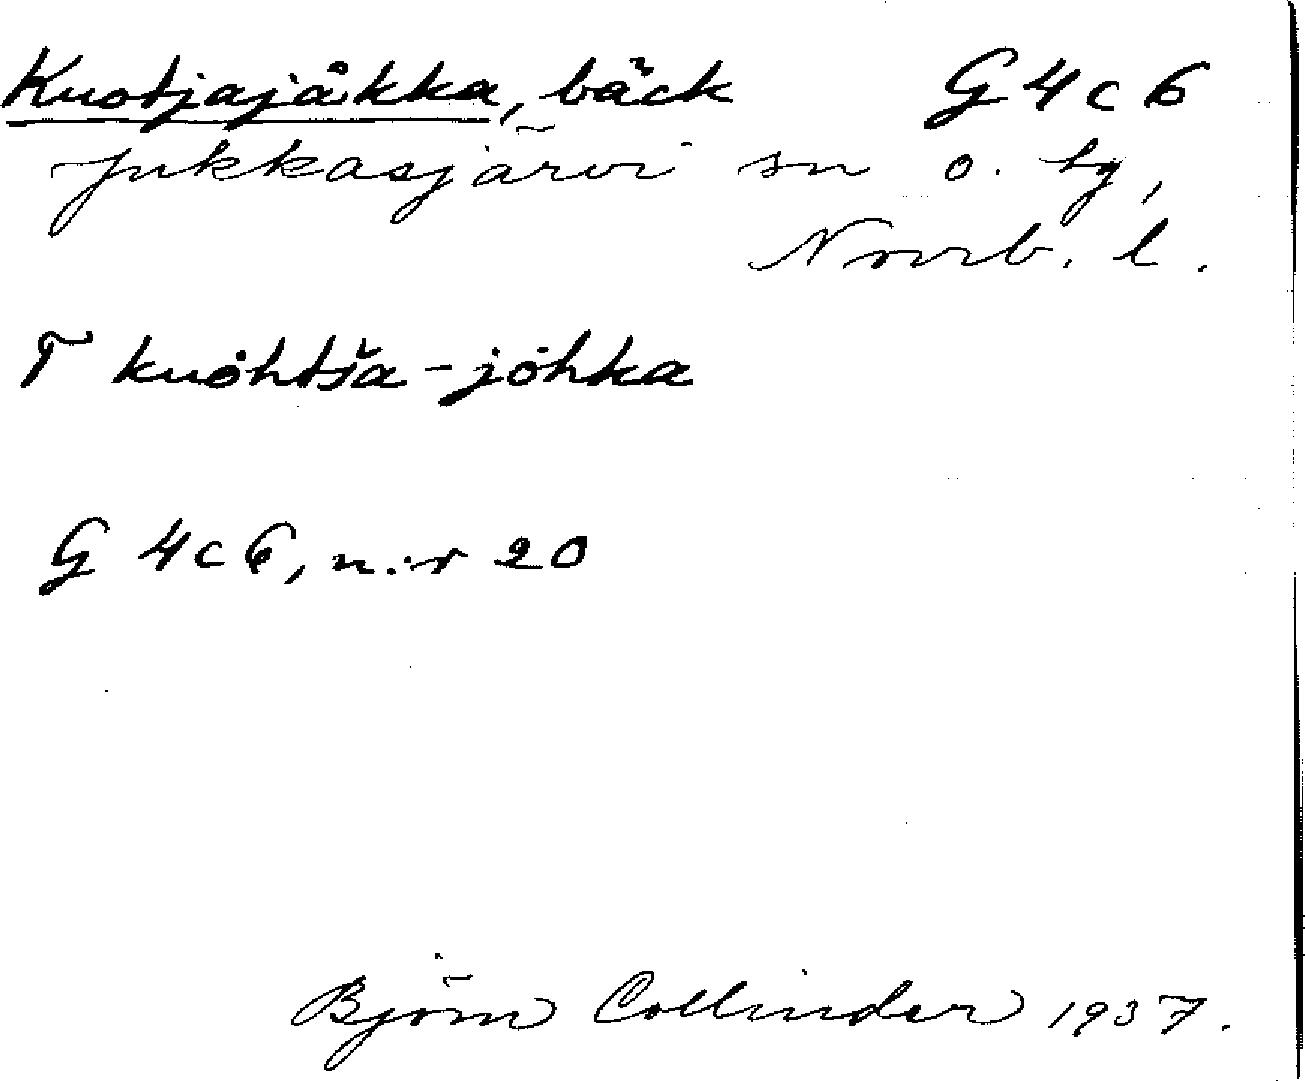 Kuotjajåkka, bäck G 4 c 6
Jukkasjärvi sn o. tg,
Norrb. l.
T kuȯhtša-jȯhka
G 4 c 6, n:r 20
Björn Collinder 1937.